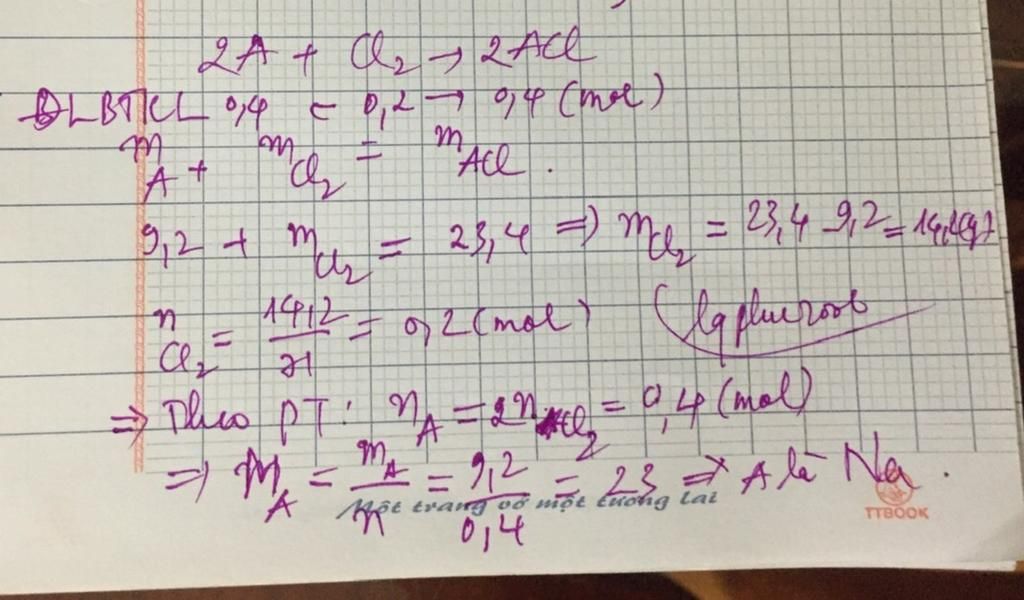 2A + Cl₂ → 2ACl
ĐLBTKL 0,4 ← 0,2 → 0,4 (mol)
m_A + m_Cl₂ = m_ACl .
9,2 + m_Cl₂ = 23,4 => m_Cl₂ = 23,4 9,2 = 14,2(g)
n_Cl₂ = 14,2/71 = 0,2 (mol)
=> Theo PT : n_A = 2n_Cl₂ = 0,4 (mol)
=> M_A = m_A/n = 9,2/0,4 = 23 => A là Na .
Một trang vở một tương lai
TTBOOK